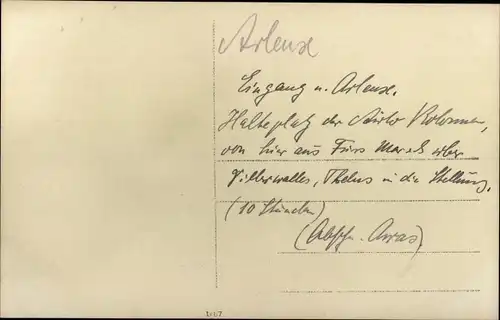 Arleux
Eingang n. Arleux.
Halteplatz der Auto Kolonnen,
von hier aus Fuss Marsch über
Villerwalles, Thelus in die Stellung.
(10 Stunden)
(Absch. Arras)